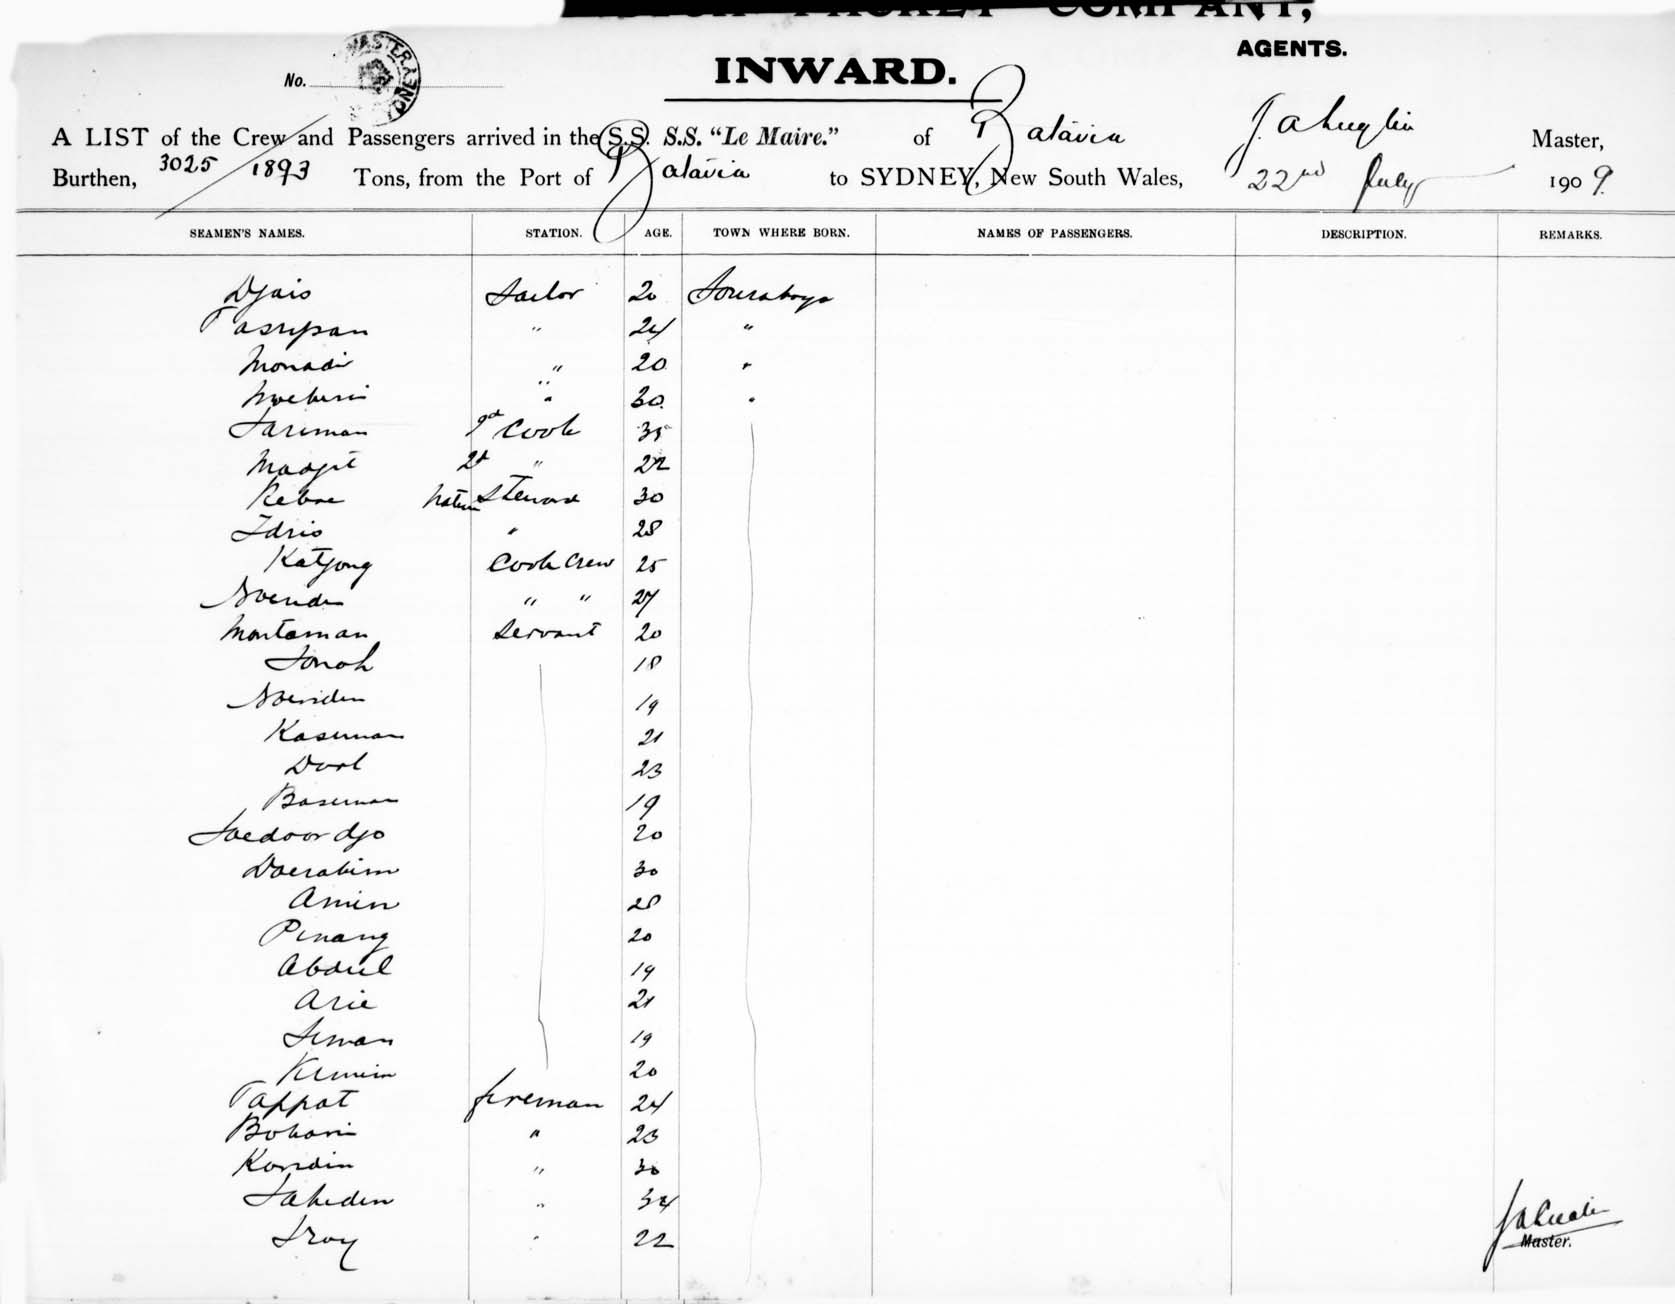 PACKET COMPANY,
AGENTS.
INWARD.
No.
MASTER SYDNEY
A LIST of the Crew and Passengers arrived in the S.S. S.S. "Le Maire." of Batavia Master,
Burthen, 3025 / 1893 Tons, from the Port of Batavia to SYDNEY, New South Wales, 22nd July 1909.
SEAMEN'S NAMES. STATION. AGE. TOWN WHERE BORN. NAMES OF PASSENGERS. DESCRIPTION. REMARKS.
Djais Sailor 20 Sourabaya
Tasripan " 24 "
Monadi " 20 "
" 30 "
Sariman Cook 35
Madjit 2d " 22
Steward 30
Idris " 28
Katjong Cook Crew 25
" " 27
Montaman Servant 20
Sonoh 18
19
Kaseman 21
23
Baseman 19
Soedoordjo 20
30
Amin 28
Pinang 20
Abdul 19
Arie 21
Seman 19
20
Tappat fireman 24
Bohari " 23
Kondin " 30
Sahiden " 34
" 22
Master.